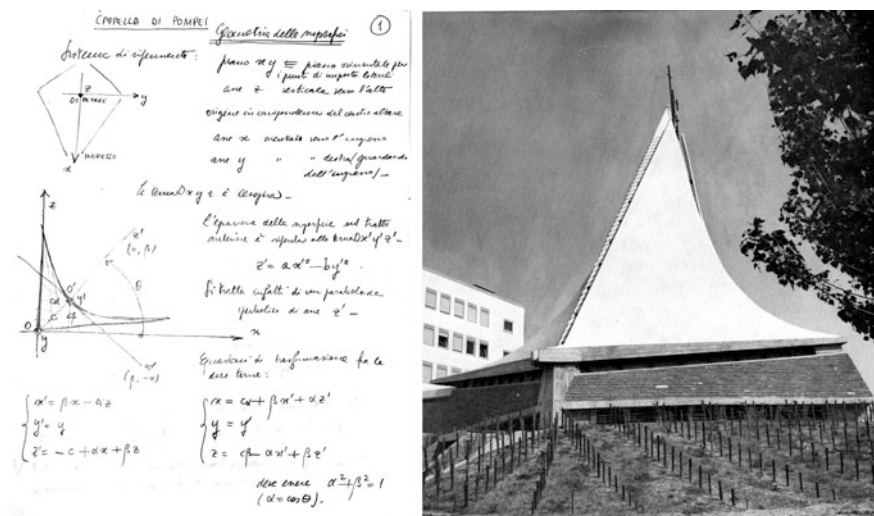 CAPPELLA DI POMPEI
Geometria delle superfici
1
Sistema di riferimento:
piano xy ≡ piano orizzontale per
i punti di imposta laterali
asse z verticale verso l'alto
origine in corrispondenza del centro altare
asse x orientato verso l'ingresso
asse y " " destra (guardando
dall'ingresso) –
z
O
y
x
INGRESSO
la terna Oxyz è
L'equazione della superficie nel tratto
anteriore è riferita alla terna O'x'y'z' –
z' = ax'² – by'²
Si tratta infatti di un paraboloide
iperbolico di asse z' –
z
z'
(α, β)
O'
y'
θ
O
y
x
x'
(β, -α)
Equazioni di trasformazione fra le
due terne:
x' = βx – αz
y' = y
z' = –c + αx + βz
x = cα + βx' + αz'
y = y'
z = cβ – αx' + βz'
deve essere α² + β² = 1
(α = cos θ).